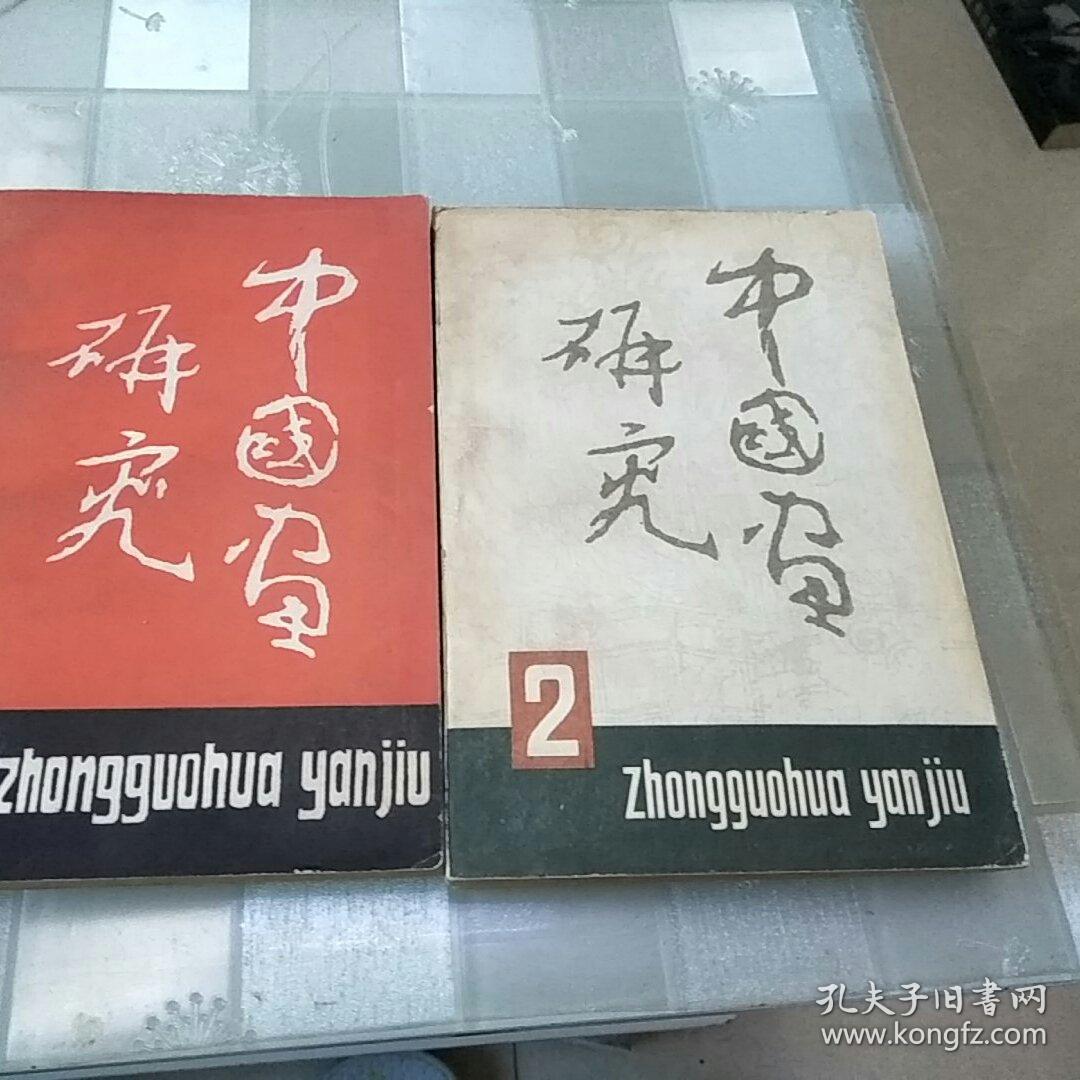 中國画
研究
zhongguohua yanjiu
中國画
研究
2
zhongguohua yanjiu
孔夫子旧書网
www.kongfz.com